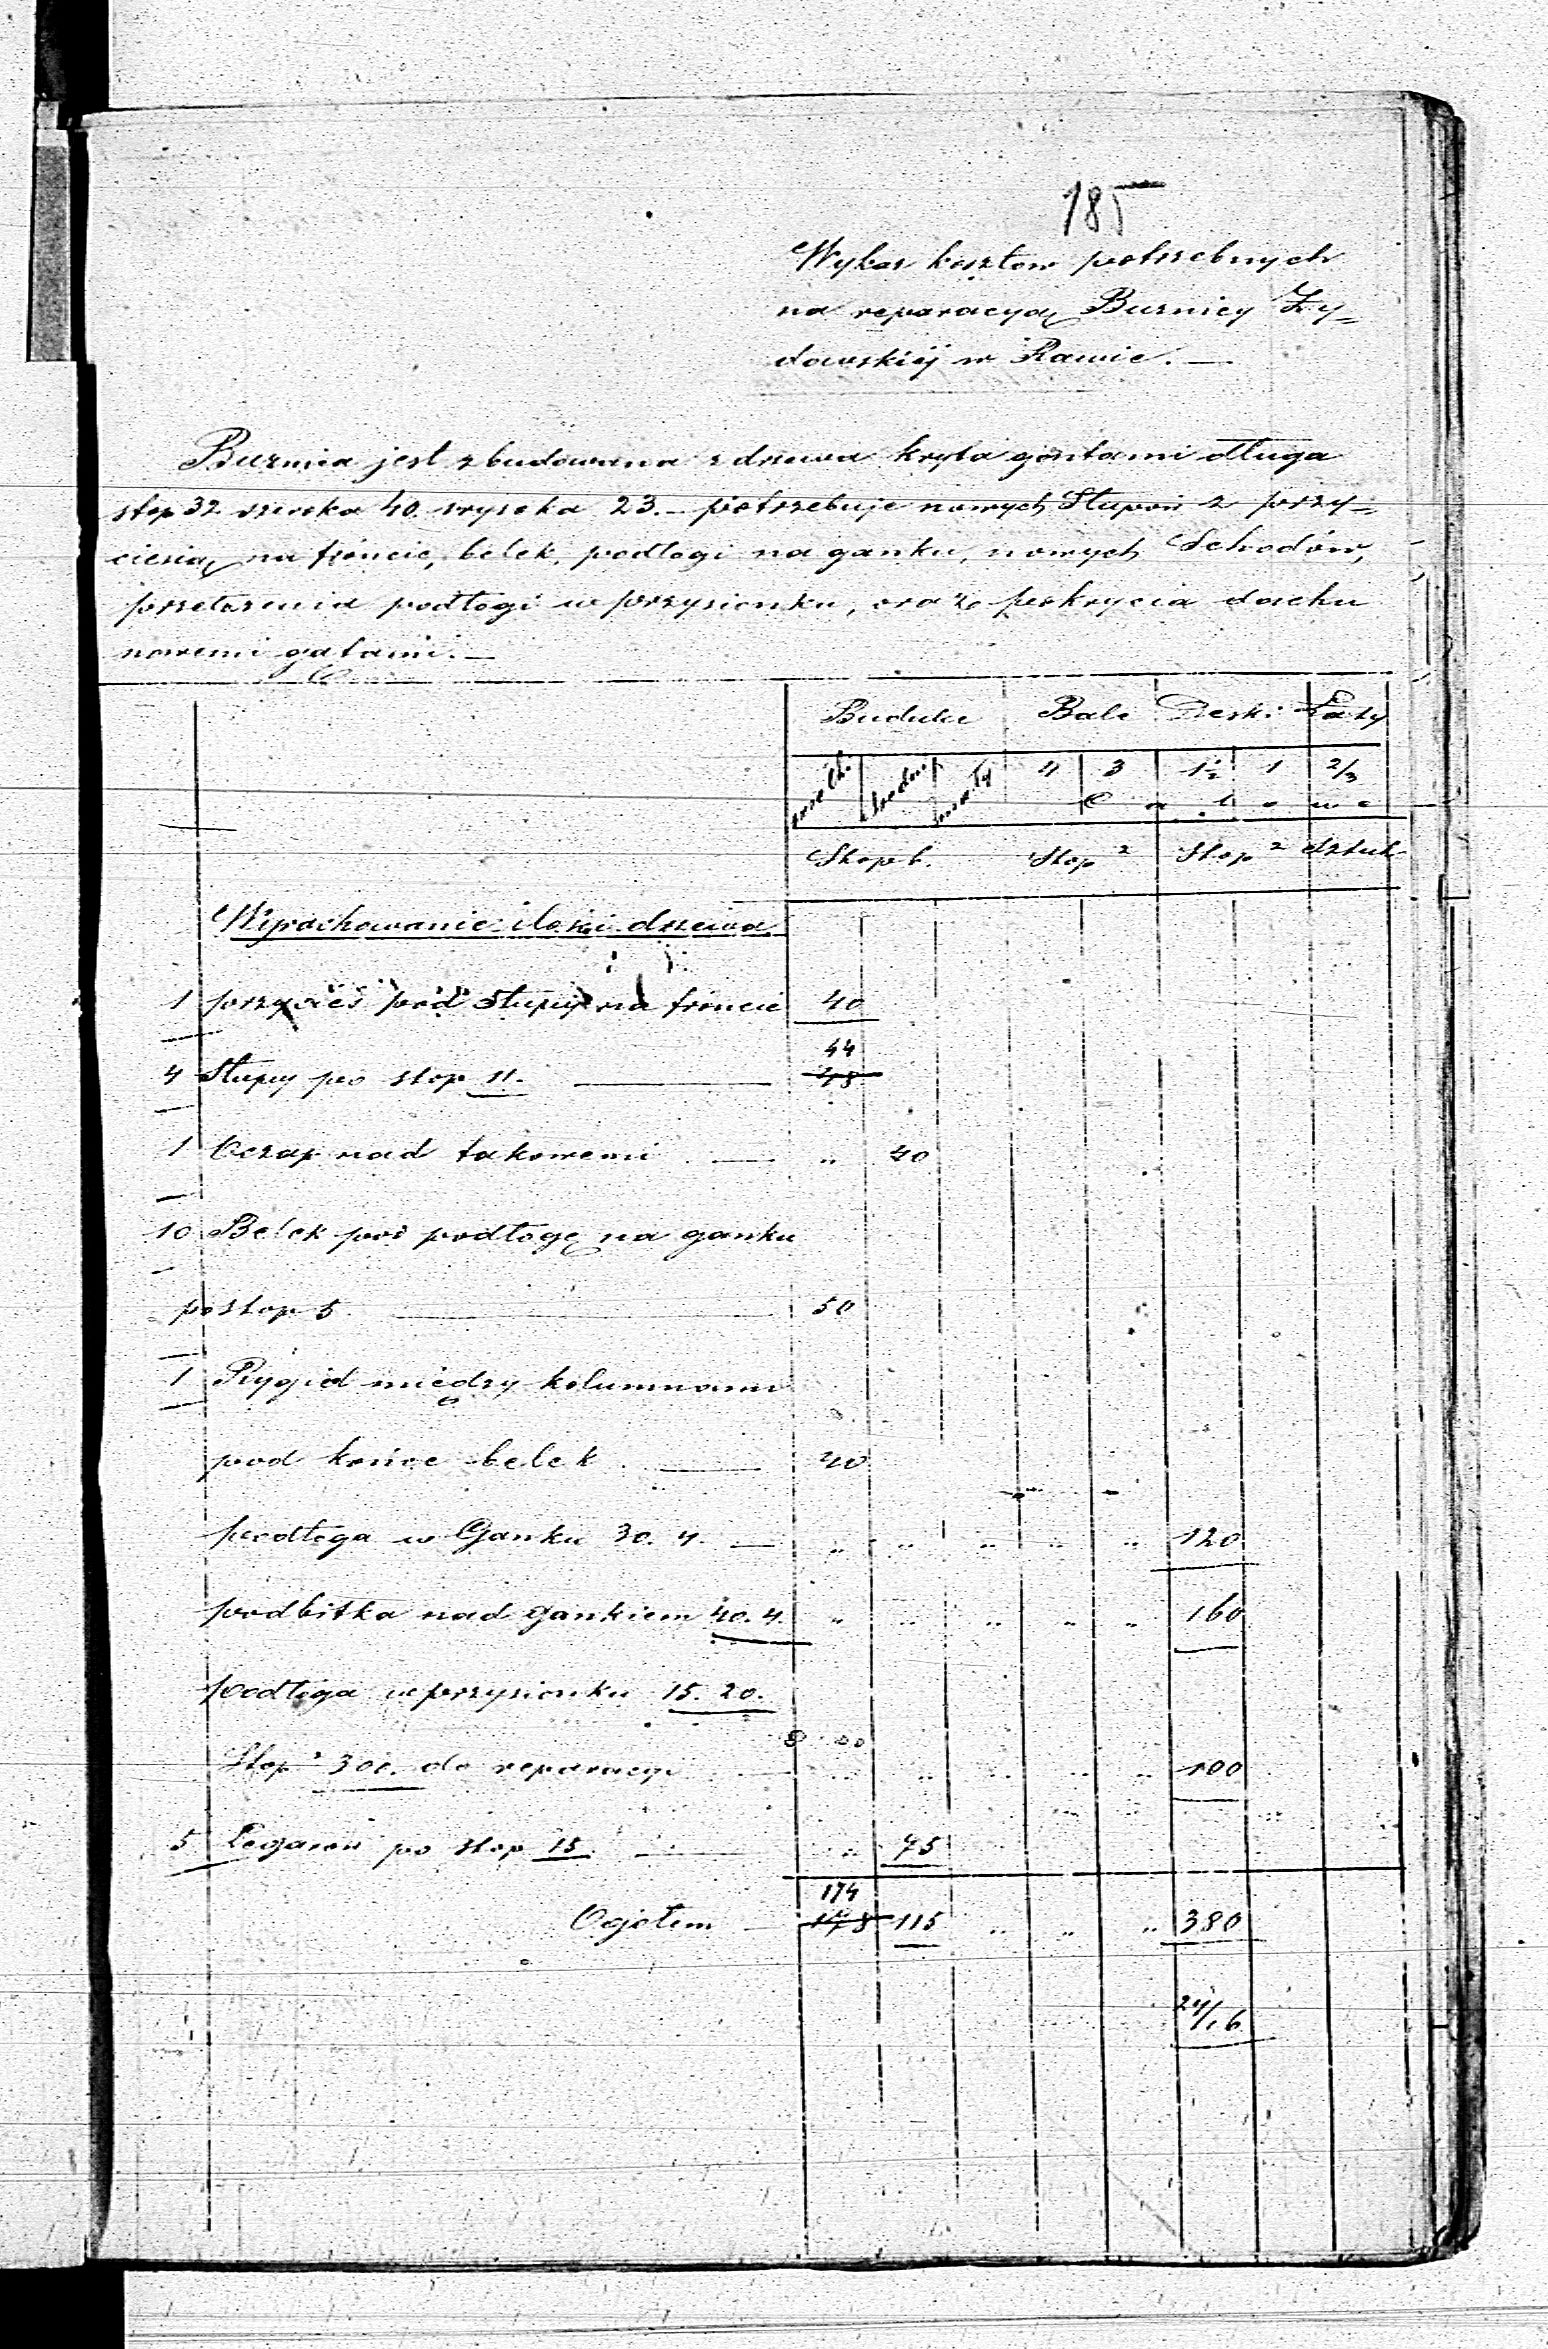 185
Wykaz kosztow potrzebnych
na reparacyą Buznicy Zy=
dowskiéj w Rawie. —
Buznica jest zbudowana z drzewa kryta gątami długa
stop 32 szeroka 40. wysoka 23. — potrzebuje nowych Słupow 2 przy=
ciesią na froncie, belek, podlogi na ganku, nowych Schodów,
przełożenia podłogi w przysionku, oraz pokrycia dachu
nowemi gątami. —
Budulcu Bale Deski Łaty
średni małý 4 3 1½ 1 2/3
C a l o w e
Stop b. Stop ² Stop ² Sztuk
Wyrachowanie ilości drzewa
1 przycieś pod słupy na froncie 40
44
4 Słupy po stop 11. — 48
1 Oczap nad takowemi — „ 40
10 Belek pod podłogę na ganku
po stop 5. — 50
1 Rygiel między kolumnami
pod końce belek — 40
podłoga w Ganku 30. 4. — „ „ „ „ „ 120
podbitka nad gankiem 40. 4. „ „ „ „ „ 160
podłoga w przysionku 15. 20.
Stop ² 300. do reparacyi — „ „ „ „ „ 100
5 Legarow po stop 15. — „ 75
174
Ogółem — 178 115 „ „ „ 380
24/16